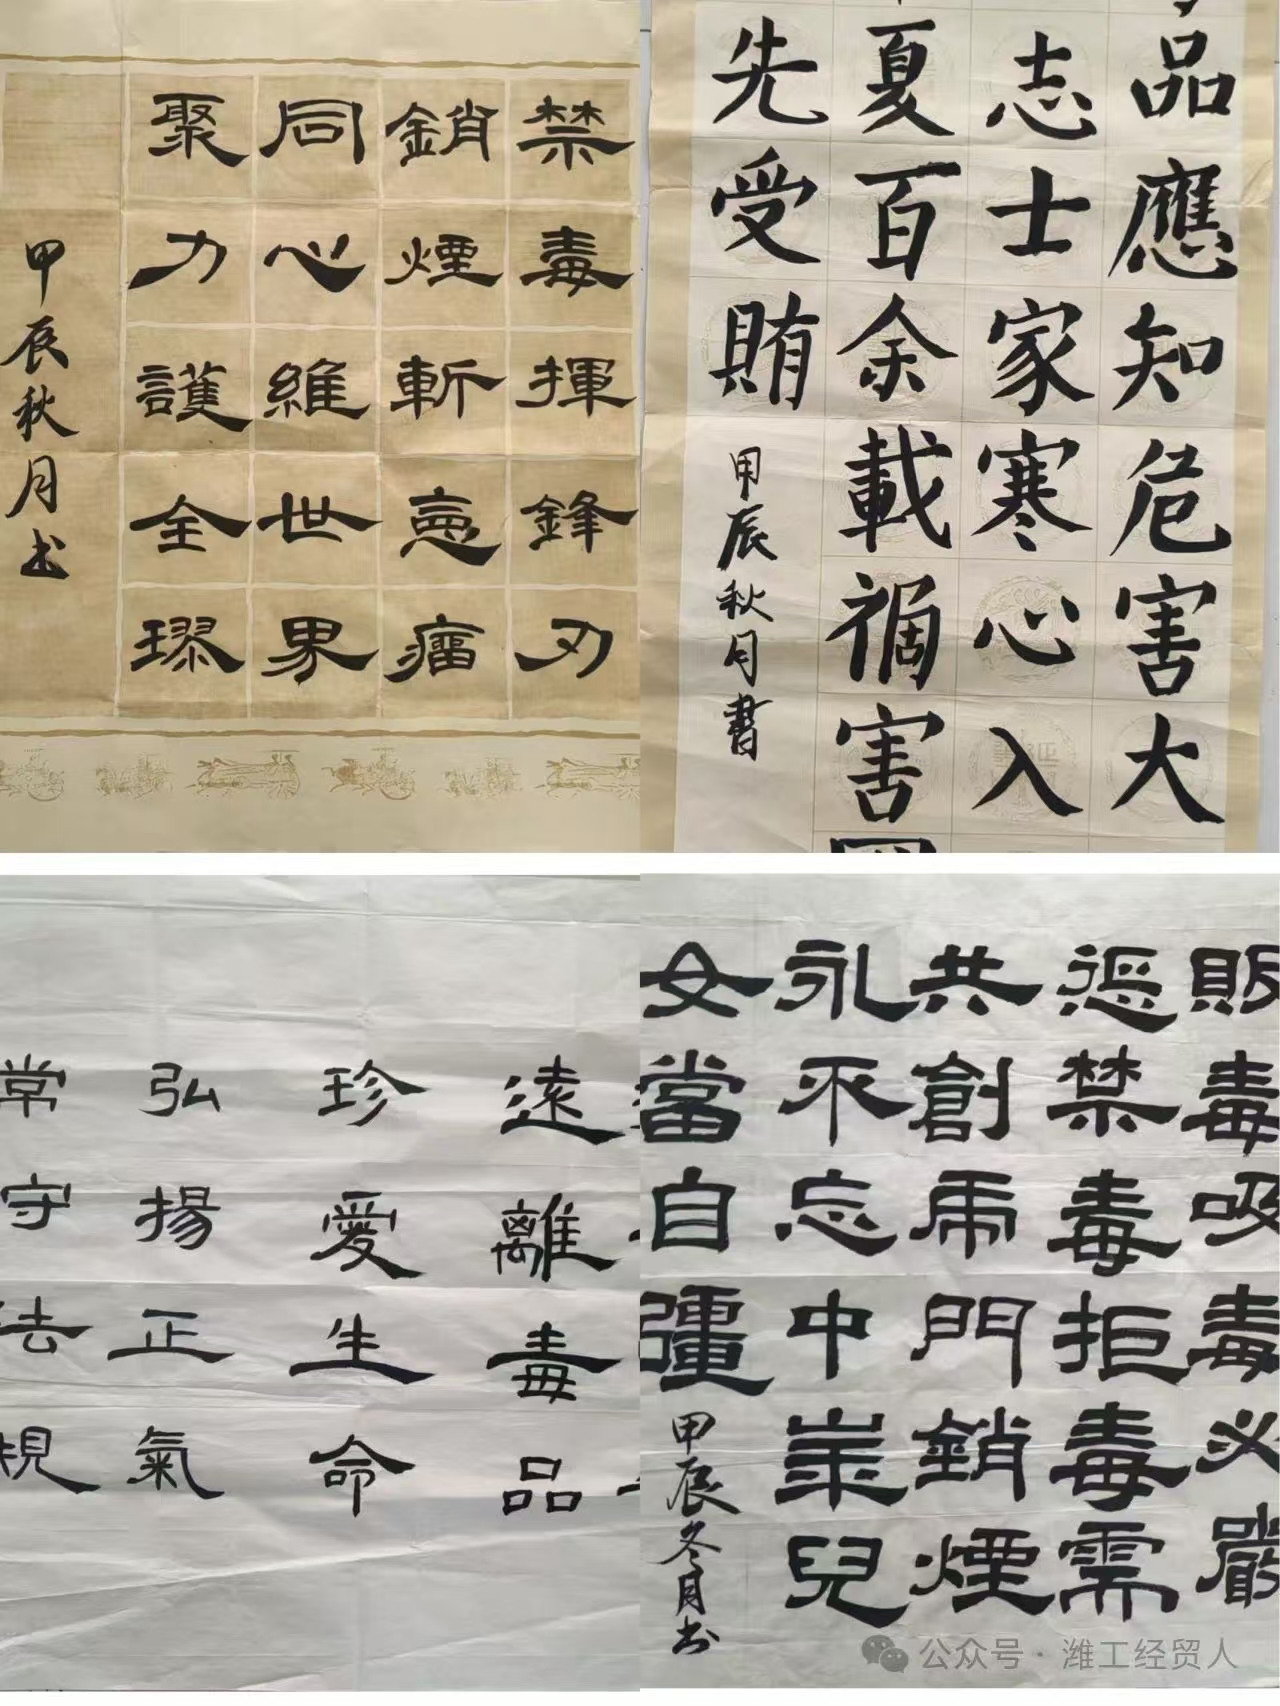 禁毒揮鋒刃
銷煙斬惡瘤
同心維世界
聚力護全璆
甲辰秋月书
品應知危害大
志士家寒心入
夏百余載禍害
先受賄
甲辰秋月書
遠離毒品
珍愛生命
弘揚正氣
常守法規
販毒吸毒必嚴
惩禁毒拒毒需
共創虎門銷煙
永不忘中華兒
女當自彊
甲辰冬月书
公众号·潍工经贸人